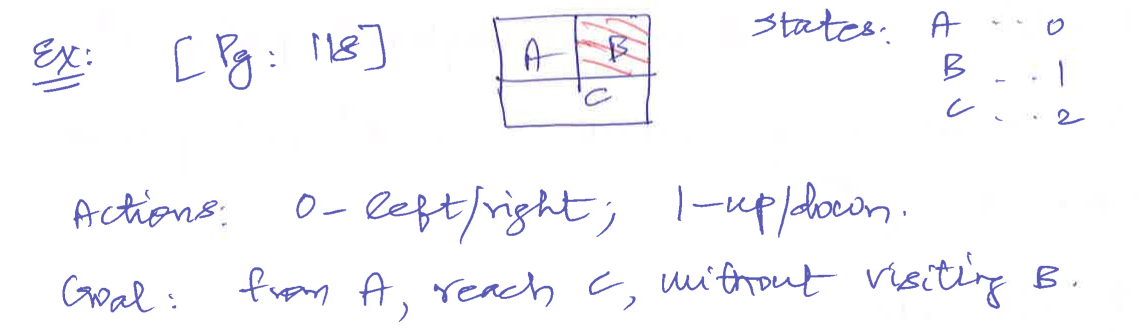 Ex: [Pg: 118]
A B
C
States: A -- 0
B -- 1
C -- 2
Actions: 0- left/right; 1-up/down.
Goal: from A, reach C, without visiting B.